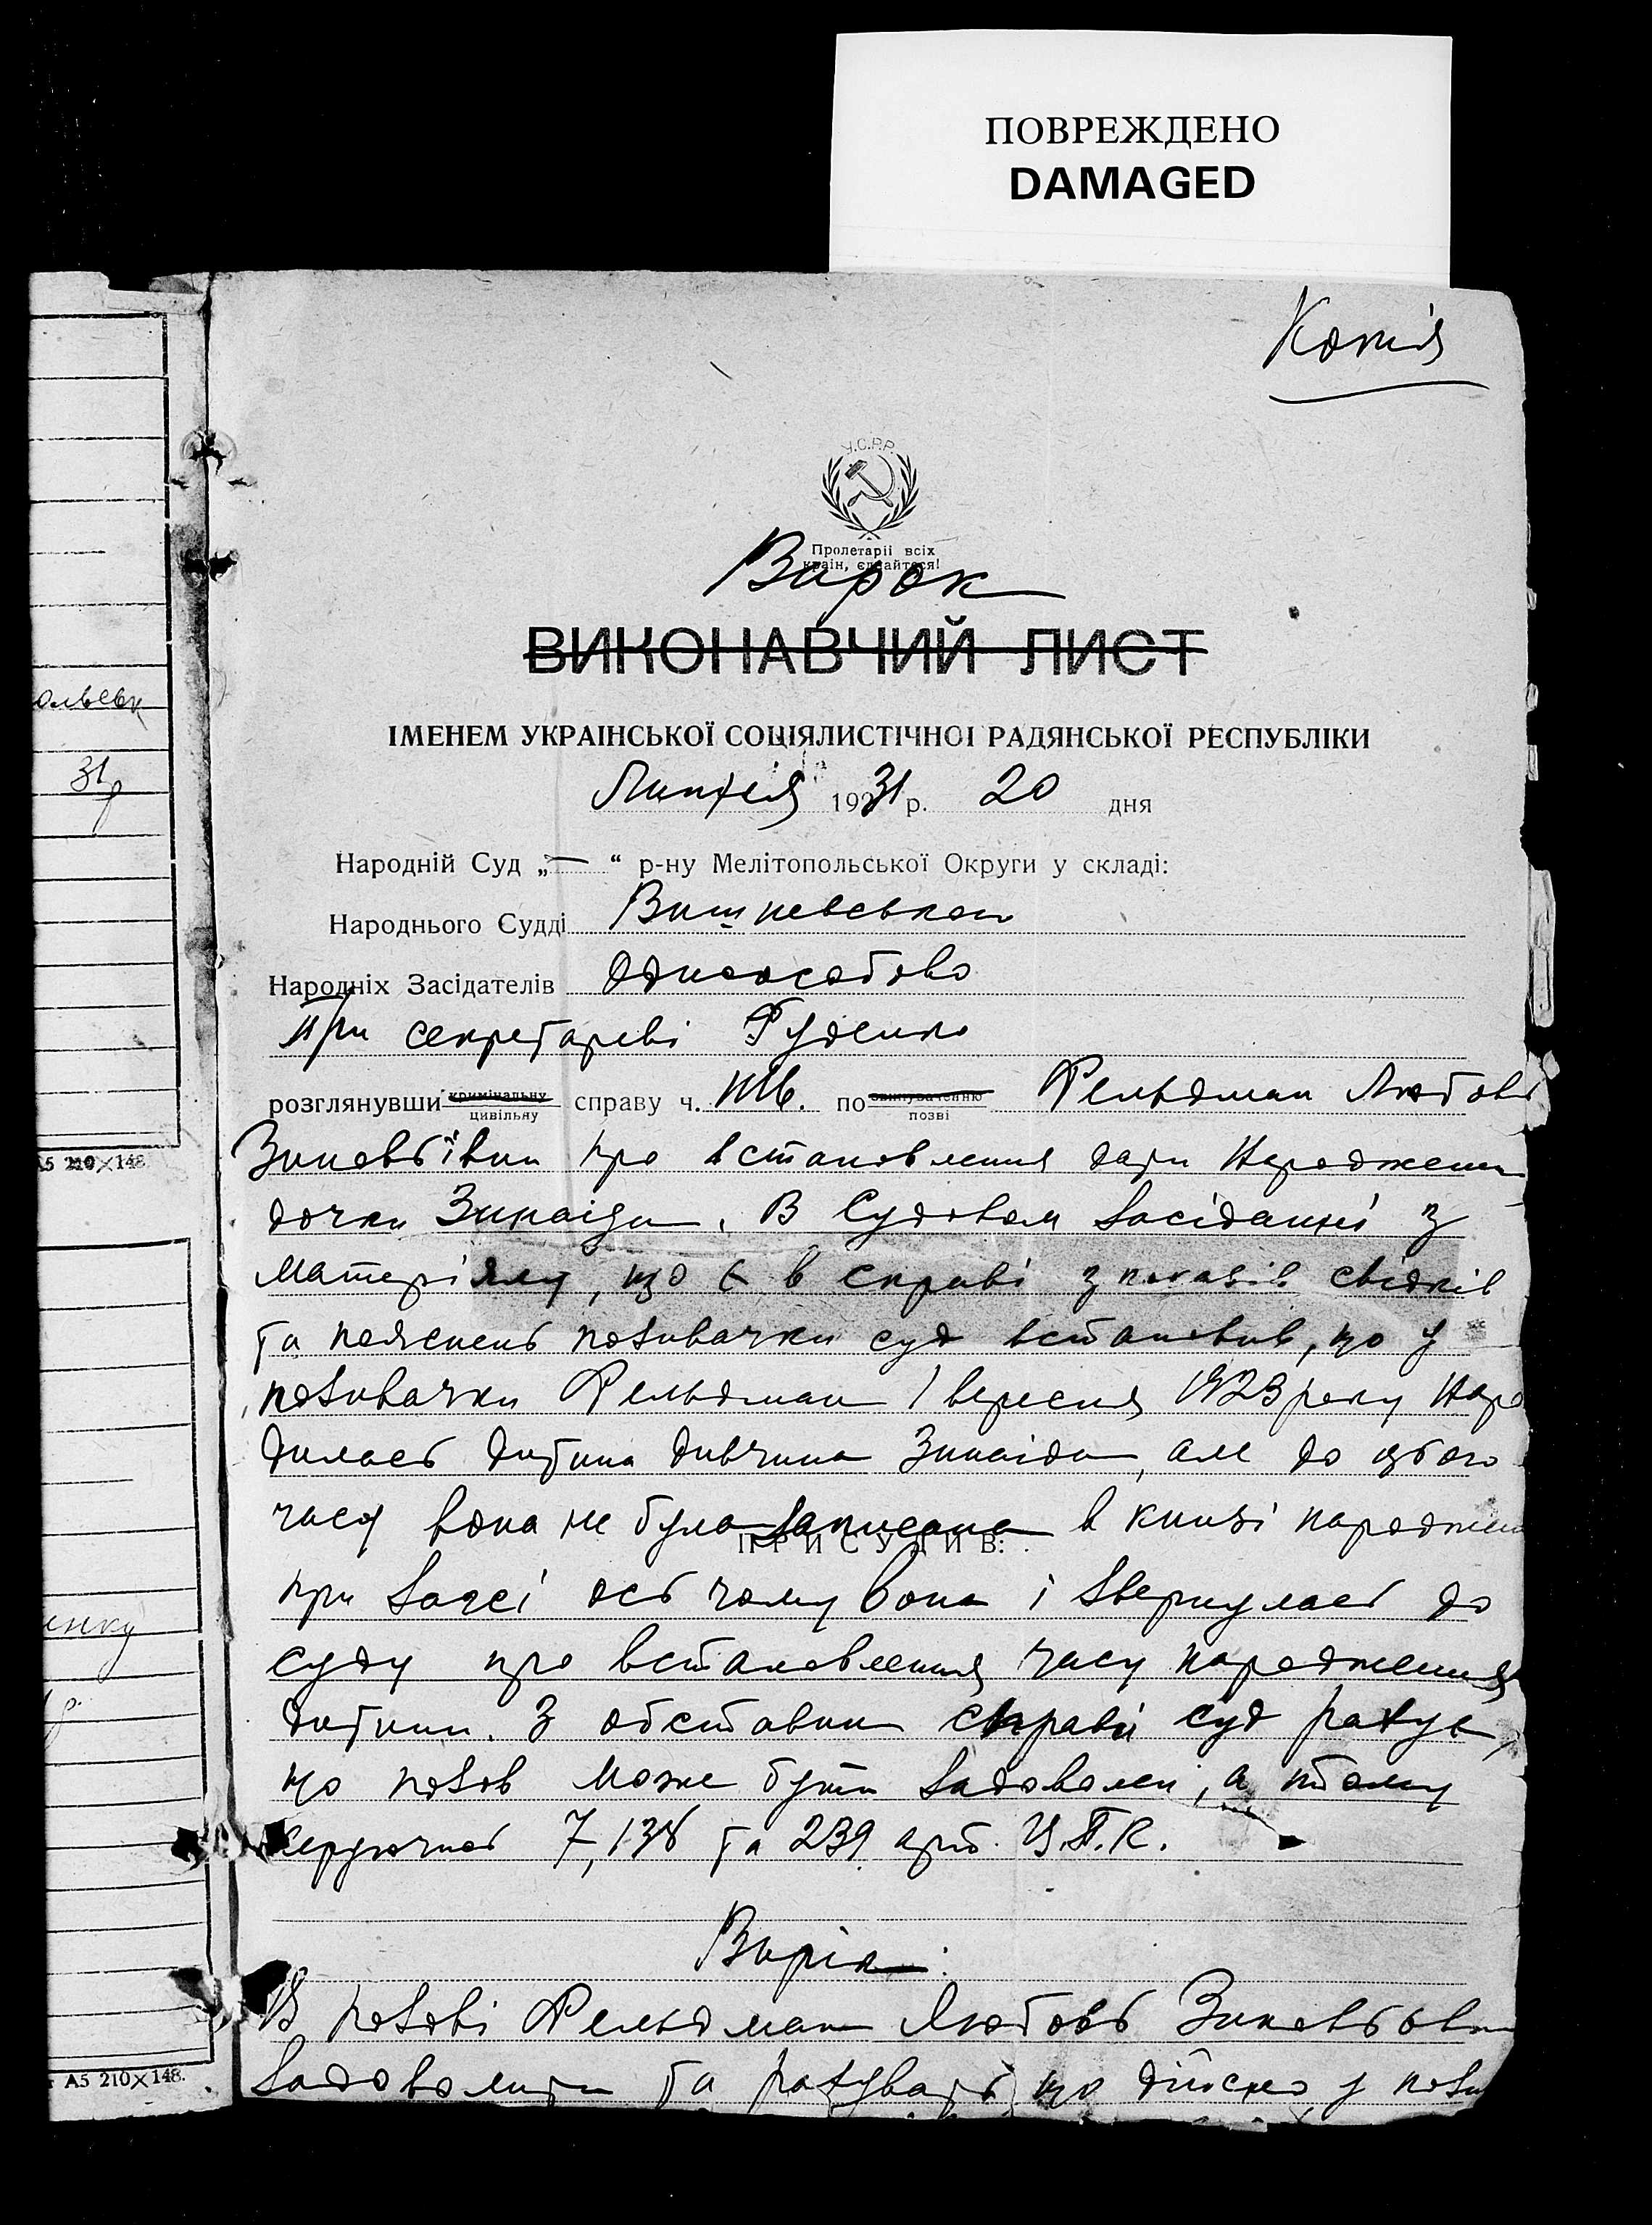 ПОВРЕЖДЕНО
DAMAGED
Копія
У.С.Р.Р.
Пролетарії всіх
країн, єднайтеся!
Вирок
ВИКОНАВЧИЙ ЛИСТ
ІМЕНЕМ УКРАІНСЬКОЇ СОЦІЯЛИСТІЧНОІ РАДЯНСЬКОЇ РЕСПУБЛІКИ
Липня 1931 р. 20 дня
Народній Суд „—“ р-ну Мелітопольської Округи у складі:
Народнього Судді Вишневської
Народніх Засідателів Одноособово
При секретареві Руденко
розглянувши кримінальну цивільну справу ч. по обвинуваченню позві Фельдман Любов
Зиновбівни про встановлення дати народженн
дочки Зинаіди. В Судовом засіданні з
матеріялу, що є в справі з показів свідків
та пояснень позивачки суд встановив, що у
позивачки Фельдман 1 вересня 1923 року наро
дилась дитина дивчина Зинаіда, але до цього
часу вона не була записана в книзі народжен
ПРИСУДИВ:
при Загсі ось чому вона і звернулась до
суду про встановлення часу народження
дитини. З обставин справи суд рахує,
що позов може бути задоволен, а тому
керуючись 7, 138 та 239 арт. Ц.П.К.
Вирік:
В позові Фельдман Любовь Зиновьовн
Задоволити та рахувать що дійсно у пози
ольськ
31 р
А5 210×148
енку
р.
А5 210×148.